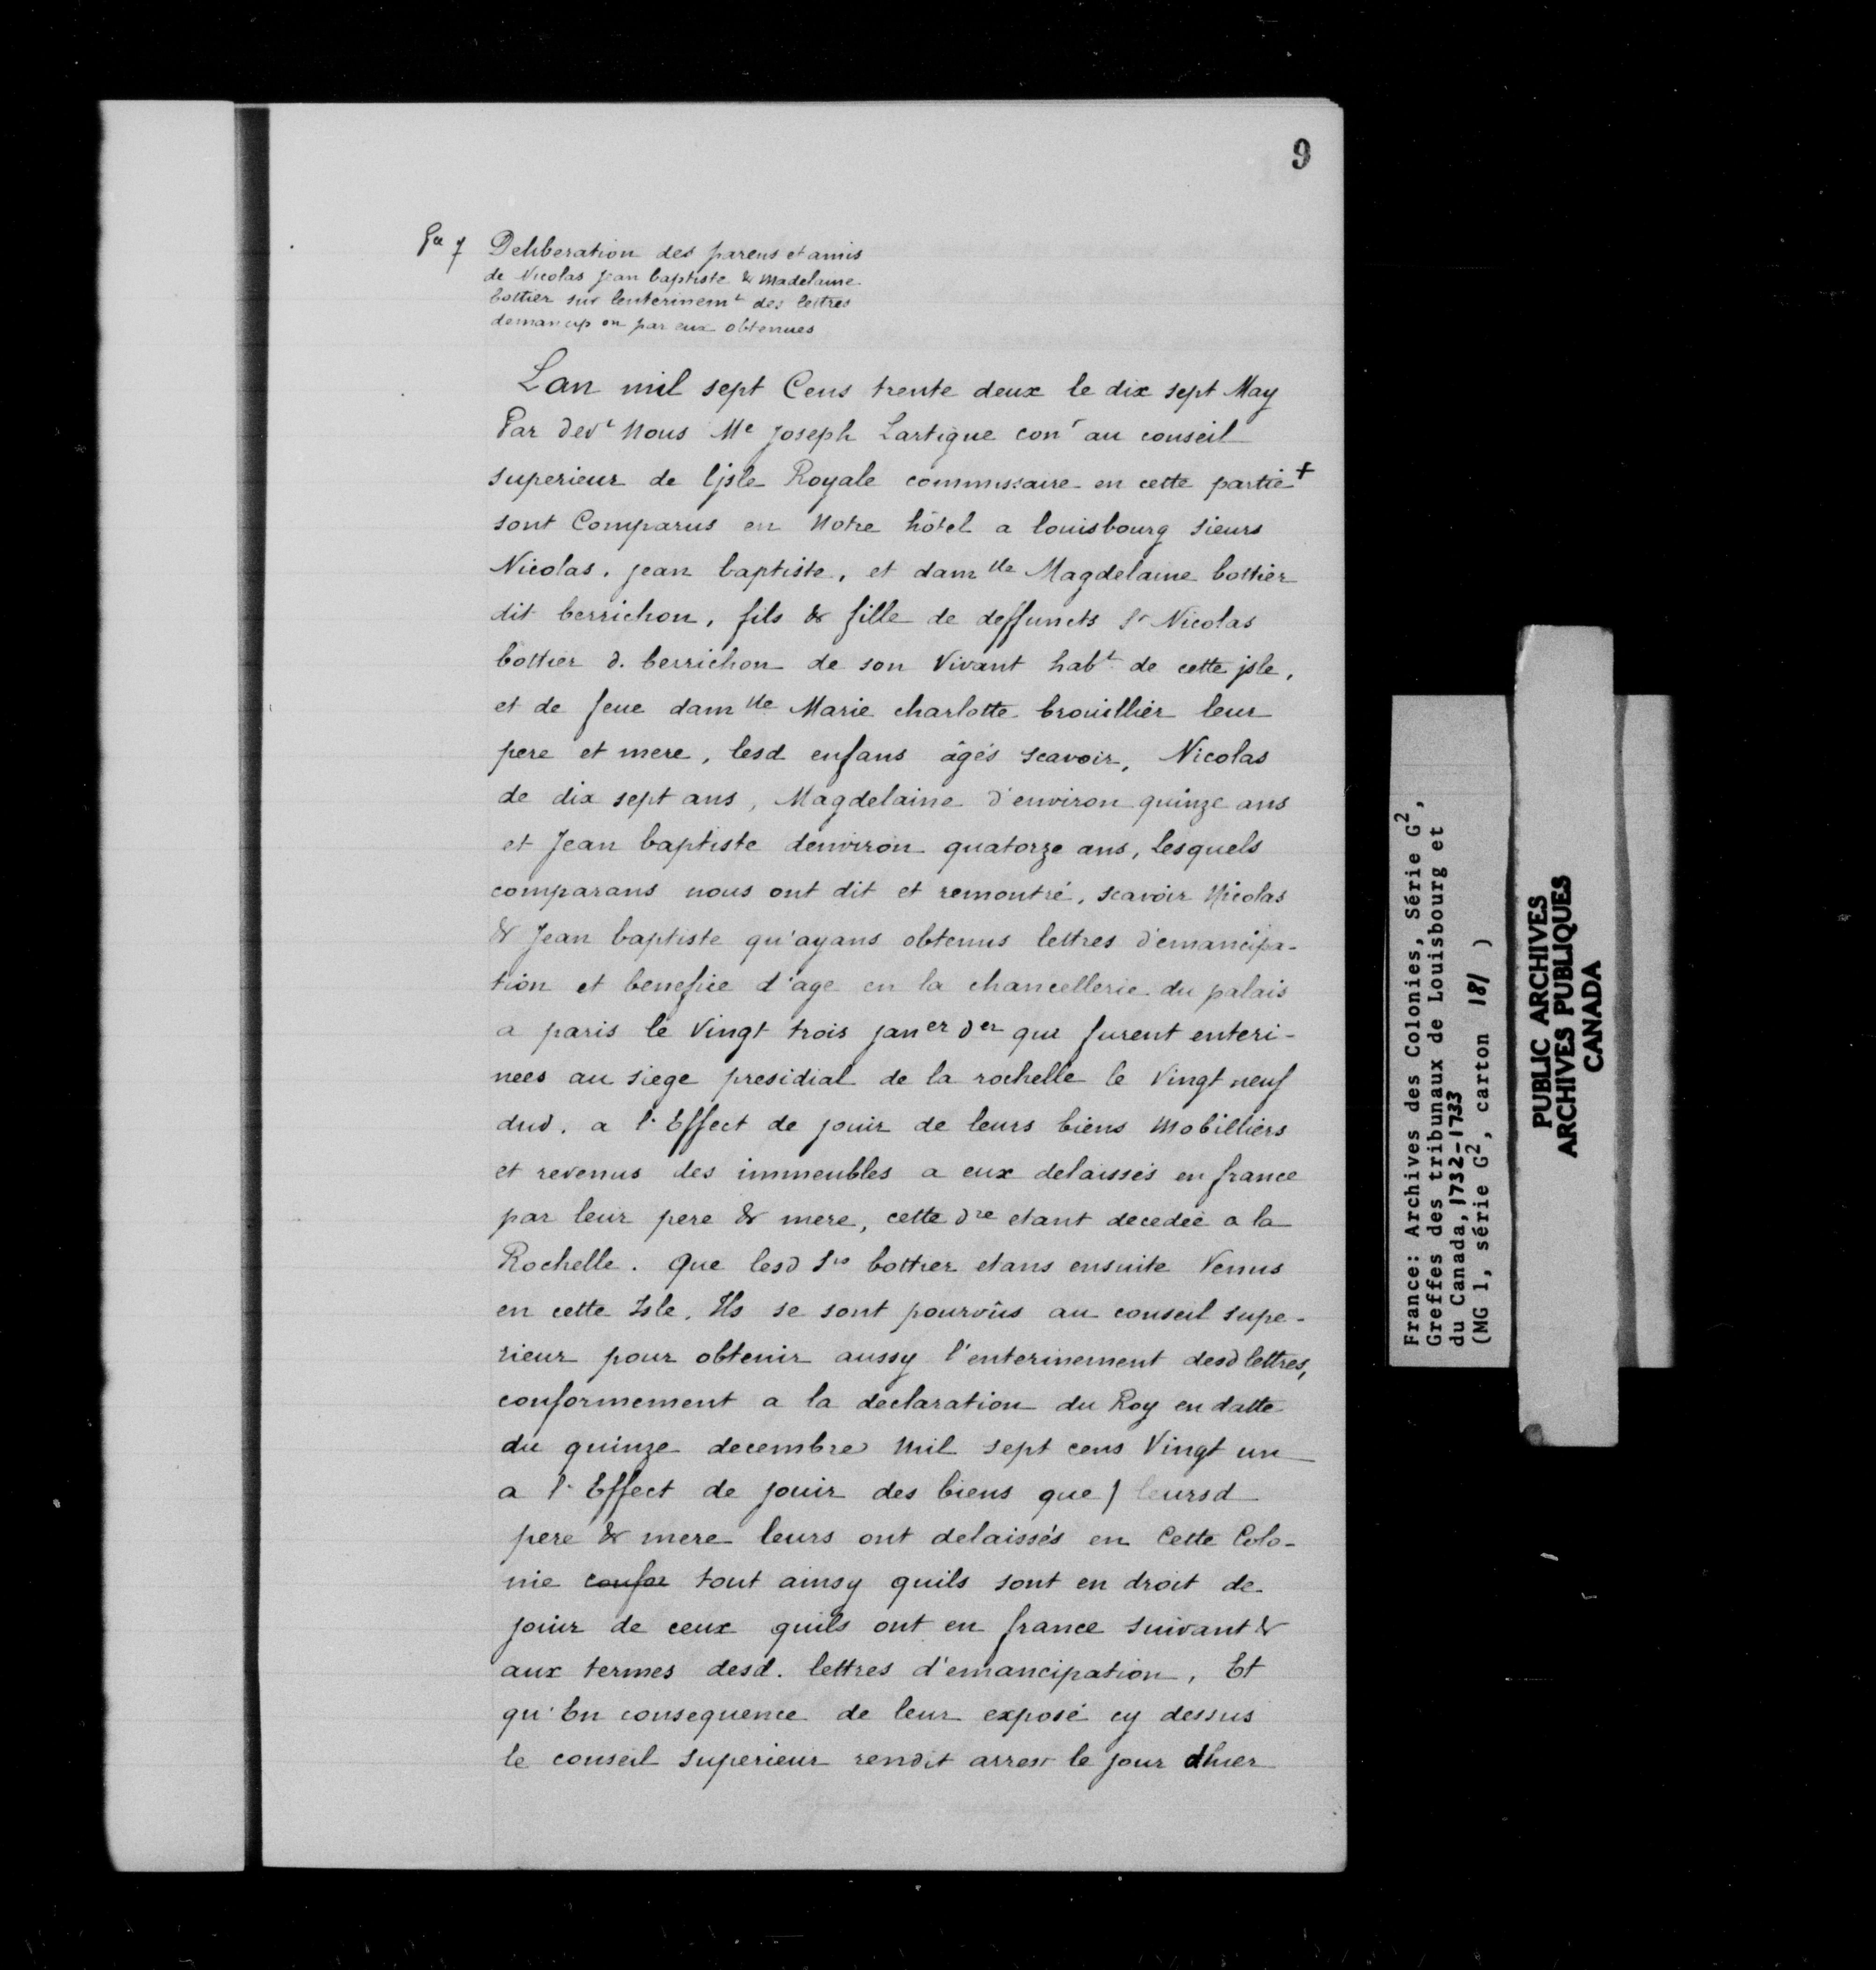 9
Deliberation des parens et amis
de Nicolas Jean baptiste & Madelaine
bottier sur lenterinemt des lettres
demancip on par eux obtenues
Lan mil sept Cens trente deux le dix sept May
Par devt Nous Me Joseph Lartigue conr au conseil
superieur de ljsle Royale commissaire en cette partie +
sont Comparus en Notre hôtel a louisbourg sieurs
Nicolas, jean baptiste, et damlle Magdelaine bottier
dit berrichon, fils & fille de deffuncts Sr Nicolas
bottier d. berrichon de son Vivant habt de cette jsle,
et de feue damlle Marie charlotte brouillier leur
pere et mere, lesd enfans âgés scavoir, Nicolas
de dix sept ans, Magdelaine d'environ quinze ans
et Jean baptiste denviron quatorze ans, Lesquels
comparans nous ont dit et remontré, scavoir Nicolas
& Jean baptiste qu'ayans obtenus lettres d'emancipa-
tion et benefice d'age en la chancellerie du palais
a paris le Vingt trois janer der qui furent enteri-
nees au siege presidial de la rochelle le Vingt neuf
dud. a l'Effect de jouir de leurs biens Mobilliers
et revenus des immeubles a eux delaissés en france
par leur pere & mere, cette dre etant decedée a la
Rochelle. Que lesd Srs bottier etans ensuite Venus
en cette Isle, Ils se sont pourvûs au conseil supe-
rieur pour obtenir aussy l'enterinement desd lettres,
conformement a la declaration du Roy en datte
du quinze decembre Mil sept cens Vingt un
a l'Effect de jouir des biens que leursd
pere & mere leurs ont delaissés en Cette Colo-
nie confor tout ainsy quils sont en droit de
jouir de ceux quils ont en france suivant &
aux termes desd. lettres d'emancipation, Et
qu'En consequence de leur exposé cy dessus
le conseil Superieur rendit arrest le jour dhier
France: Archives des Colonies, Série G2,
Greffes des tribunaux de Louisbourg et
du Canada, 1732-1733
(MG 1, série G2, carton 181 )
PUBLIC ARCHIVES
ARCHIVES PUBLIQUES
CANADA